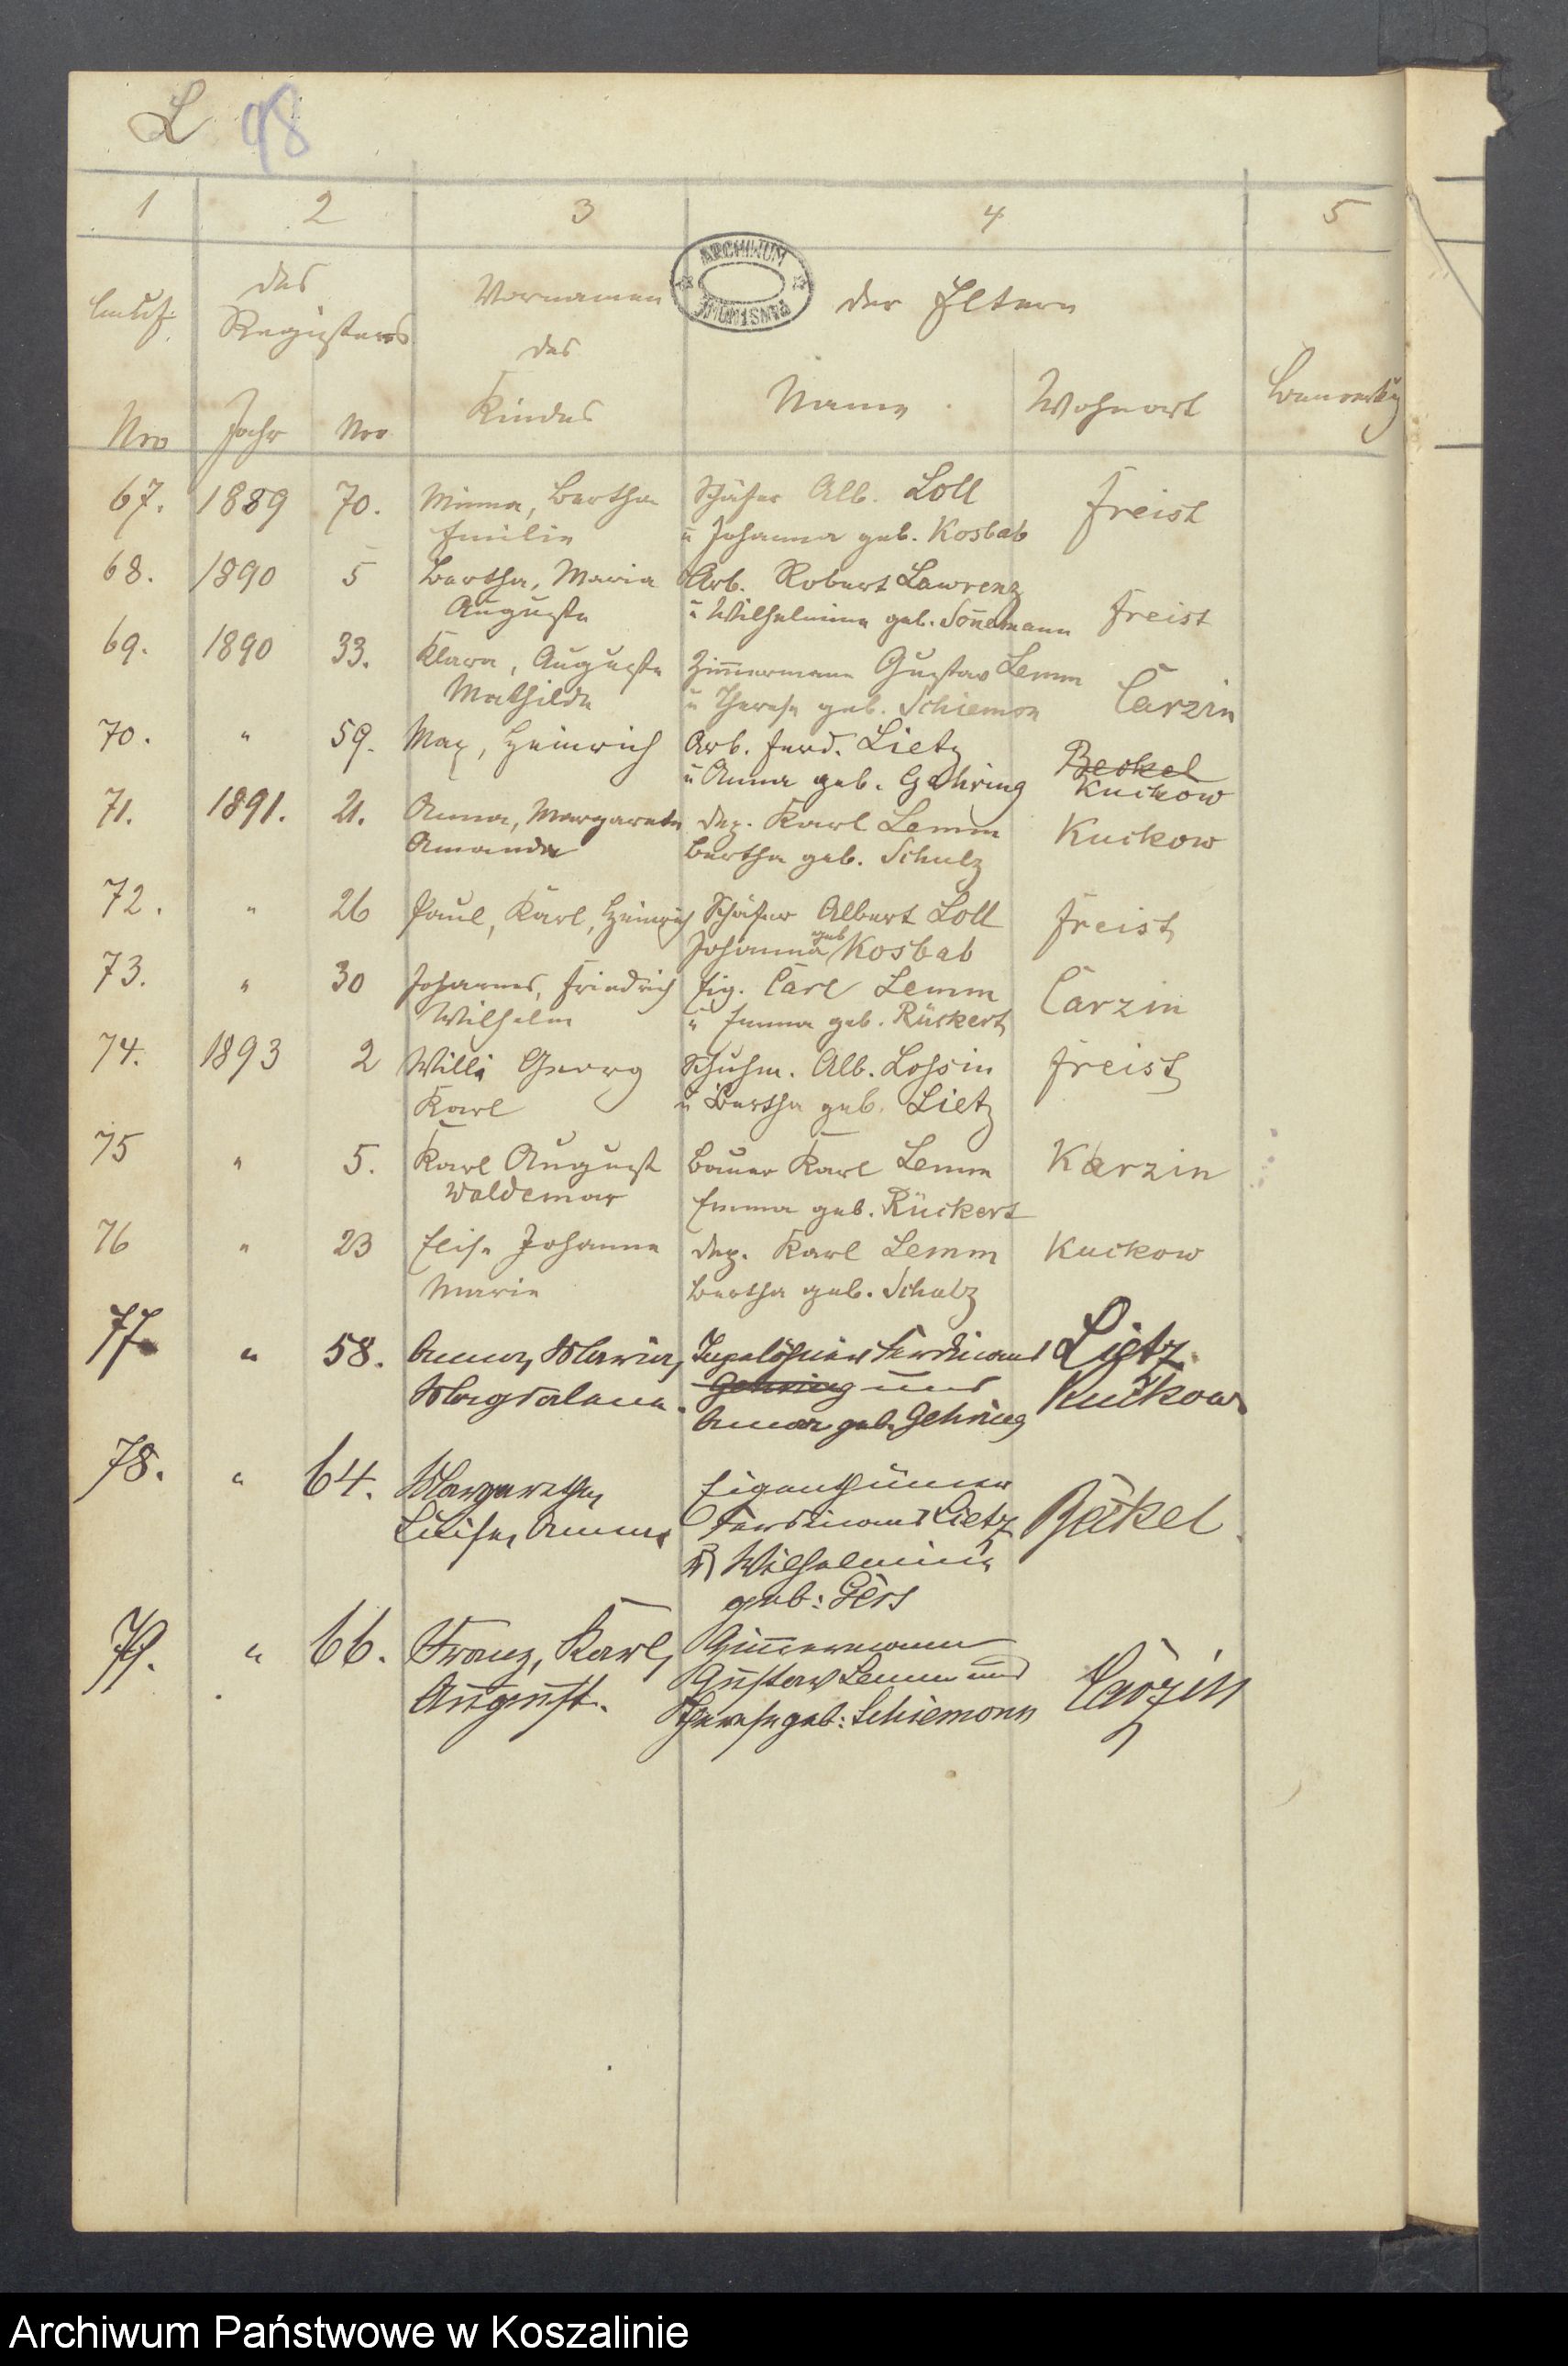 L 98
1 2 3 4 5
ARCHIWUM PAŃSTWOWE
des Vornamen der Eltern
laufd. Registers des
Nro Jahr Nro Kindes Name Wohnort Bemerkg
67. 1889 70. Minna, Bertha Schäfer Alb. Loll Freist
Emilie u Johanna geb. Kosbab
68. 1890 5 Bertha, Maria Arb. Robert Lawrenz Freist
Auguste u Wilhelmine geb. Sonnemann
69. 1890 33. Klara, Auguste Zimmermann Gustav Lemm Carzin
Mathilde u Therese geb. Schiemon
70. " 59. Max, Heinrich Arb. Ferd. Lietz Beckel
u Anna geb. Gehring Kuckow
71. 1891. 21. Anna, Margarete Karl Lemm Kuckow
Amanda Bertha geb. Schulz
72. " 26 Paul, Karl, Heinrich Schäfer Albert Loll Freist
Johanna geb Kosbab
73. " 30 Johannes, Friedrich Eig. Carl Lemm Carzin
Wilhelm u Emma geb. Rückert
74. 1893 2 Willi Georg Schuhm. Alb. Lossin Freist
Karl u Bertha geb. Lietz
75 " 5. Karl August Bauer Karl Lemm Karzin
Waldemar Emma geb. Rückert
76 " 23 Elise Johanna Karl Lemm Kuckow
Marie Bertha geb. Schulz
77. " 58. Anna, Maria, Tagelöhner Ferdinand Lietz
Magdalena. Gehring und Kuckow
Anna geb. Gehring
78. " 64. Margarethe, Eigenthümer
Luise, Anna Ferdinand Lietz Bäckel
Wilhelmine
geb: Gers
79. " 66. Franz, Karl, Zimmermann
August. Gustav Lemm und Carzin
Therese geb: Schiemonn
Archiwum Państwowe w Koszalinie